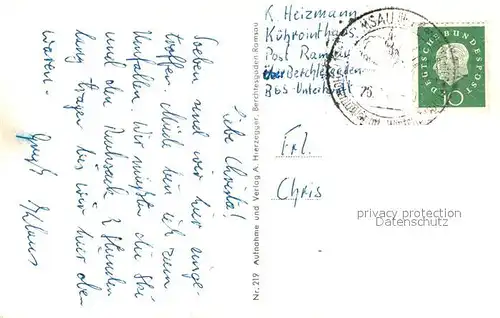 Liebe Christa!
Soeben sind wir hier einge-
troffen. Müde bin ich zum
Umfallen. Wir mußten die Ski
und den Rucksack 2 Stunden
lang tragen bis wir hier oben
waren.
Gruß Klaus
Nr. 219 Aufnahme und Verlag A. Hierzegger, Berchtesgaden-Ramsau
K. Heizmann
Kührointhaus
Post Ramsau
über Berchtesgaden
Bbs-Unterkunft
Frl.
Chris
DEUTSCHE BUNDESPOST
10
privacy protection
Datenschutz